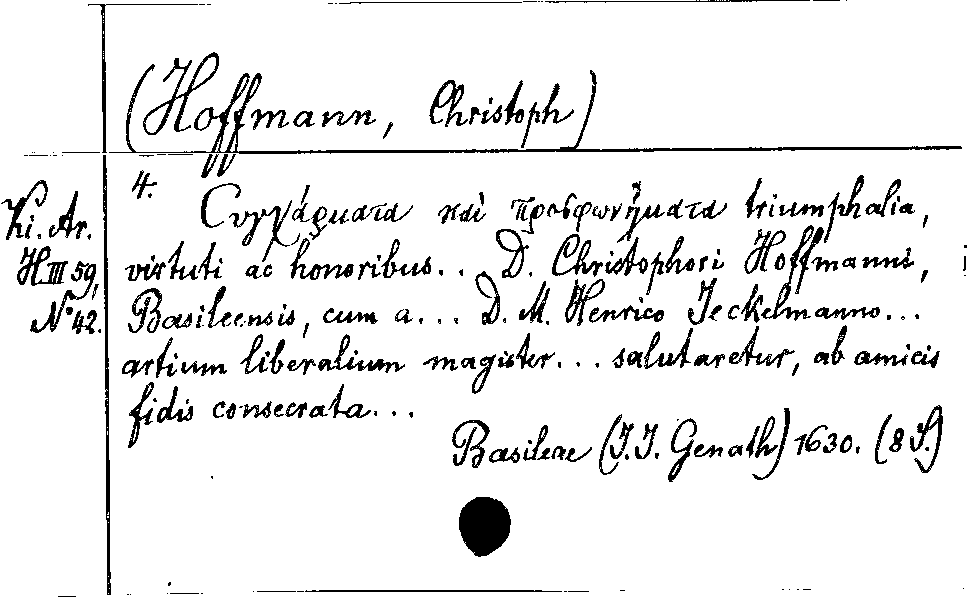 (Hoffmann, Christoph)
4.
Συγχάρματα καὶ προσφωνήματα triumphalia,
Ki. Ar.
H III 59,
No 42.
virtuti ac honoribus... D. Christophori Hoffmanni,
Basileensis, cum a... D. M. Henrico Jeckelmanno...
artium liberalium magister... salutaretur, ab amicis
fidis consecrata...
Basileae (J.J. Genath) 1630. (8 S.)